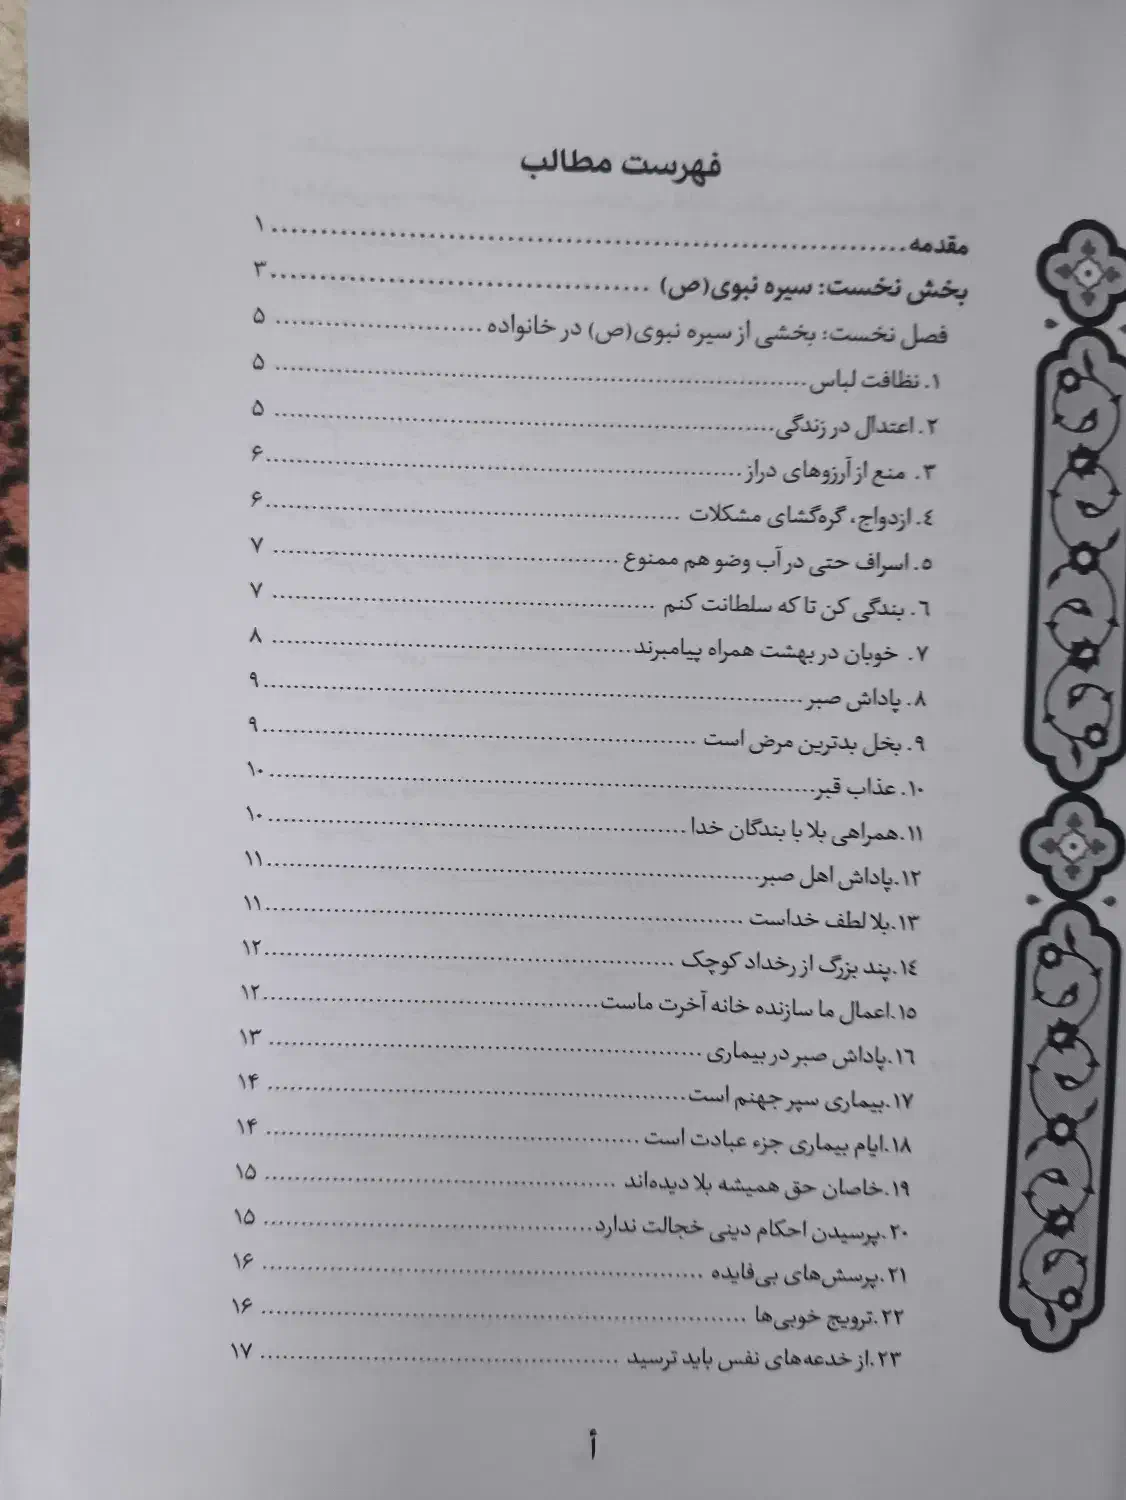 فهرست مطالب
مقدمه ........................................ ۱
بخش نخست: سیره نبوی(ص) ........................................ ۳
فصل نخست: بخشی از سیره نبوی(ص) در خانواده ........................................ ۵
۱. نظافت لباس ........................................ ۵
۲. اعتدال در زندگی ........................................ ۵
۳. منع از آرزوهای دراز ........................................ ۶
٤. ازدواج، گره‌گشای مشکلات ........................................ ۶
٥. اسراف حتی در آب وضو هم ممنوع ........................................ ۷
٦. بندگی کن تا که سلطانت کنم ........................................ ۷
۷. خوبان در بهشت همراه پیامبرند ........................................ ۸
۸. پاداش صبر ........................................ ۹
۹. بخل بدترین مرض است ........................................ ۹
۱۰. عذاب قبر ........................................ ۱۰
۱۱.همراهی بلا با بندگان خدا ........................................ ۱۰
۱۲.پاداش اهل صبر ........................................ ۱۱
۱۳.بلا لطف خداست ........................................ ۱۱
۱٤.پند بزرگ از رخداد کوچک ........................................ ۱۲
۱٥.اعمال ما سازنده خانه آخرت ماست ........................................ ۱۲
۱٦.پاداش صبر در بیماری ........................................ ۱۳
۱۷.بیماری سپر جهنم است ........................................ ۱۴
۱۸.ایام بیماری جزء عبادت است ........................................ ۱۴
۱۹.خاصان حق همیشه بلا دیده‌اند ........................................ ۱۵
۲۰.پرسیدن احکام دینی خجالت ندارد ........................................ ۱۵
۲۱.پرسش‌های بی‌فایده ........................................ ۱۶
۲۲.ترویج خوبی‌ها ........................................ ۱۶
۲۳.از خدعه‌های نفس باید ترسید ........................................ ۱۷
أ